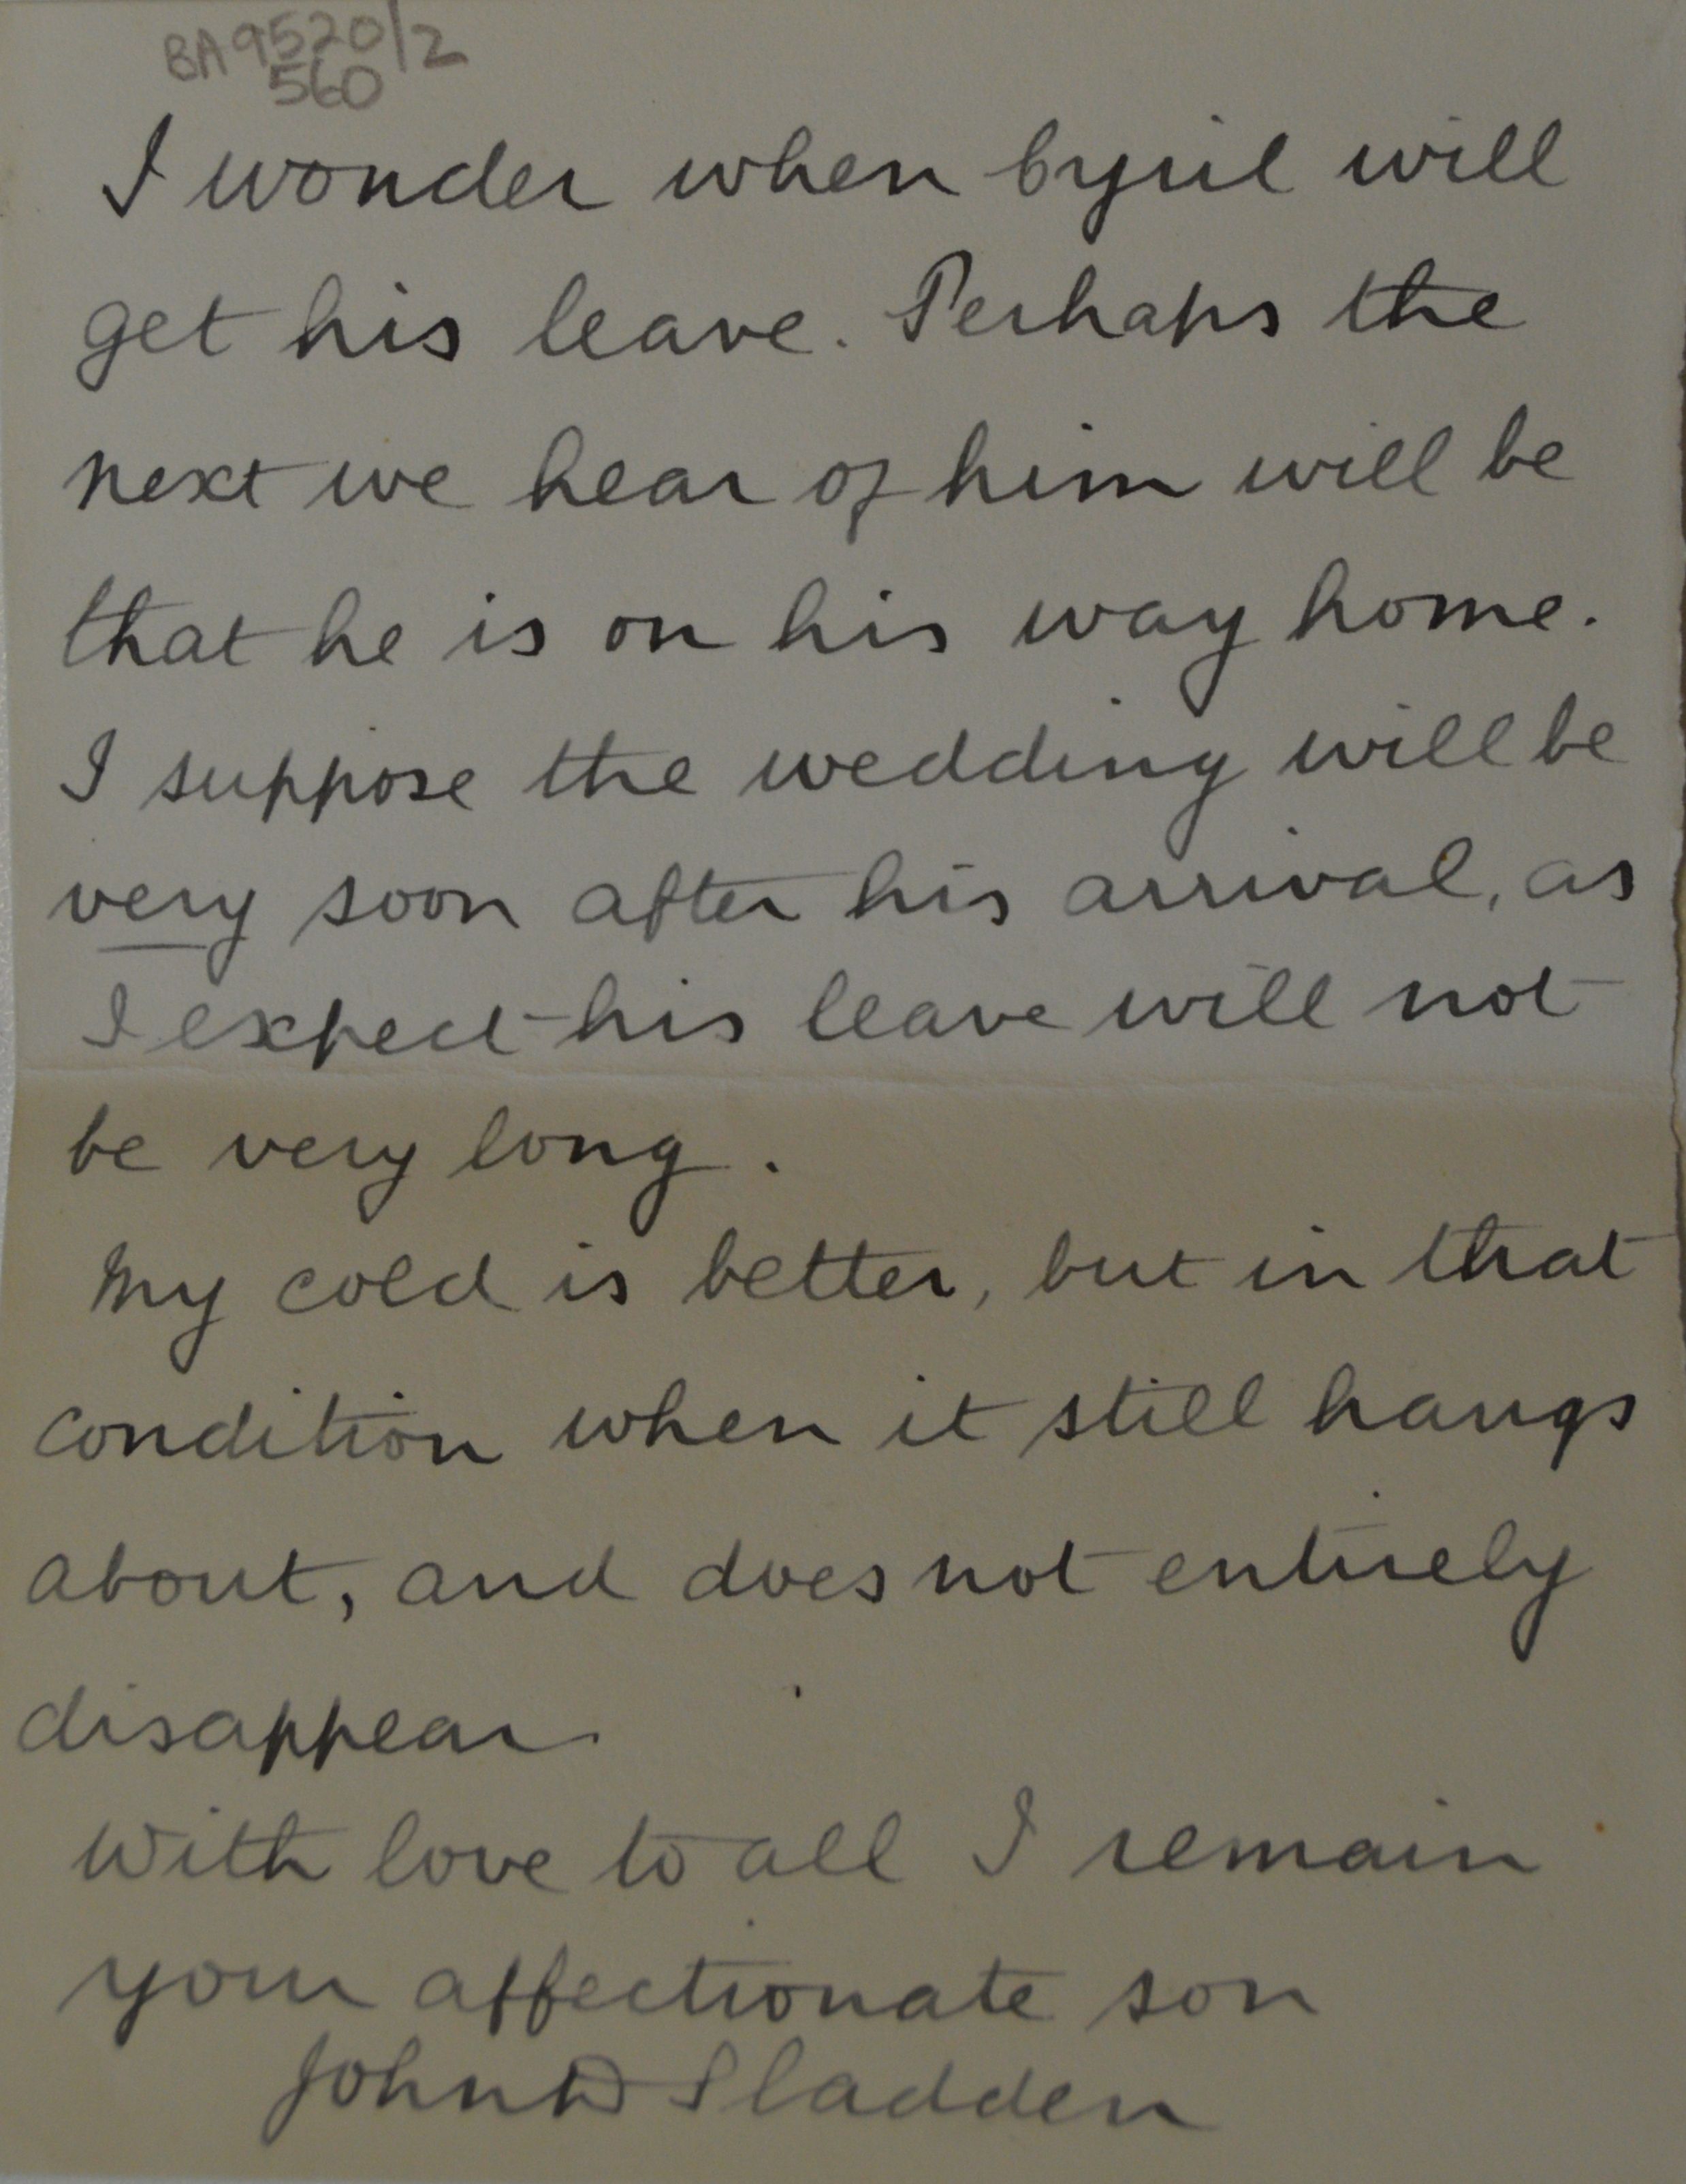 BA9520/2
560
I wonder when Cyril will
get his leave. Perhaps the
next we hear of him will be
that he is on his way home.
I suppose the wedding will be
very soon after his arrival, as
I expect his leave will not
be very long.
My cold is better, but in that
condition when it still hangs
about, and does not entirely
disappear.
With love to all I remain
your affectionate son
John D Sladden